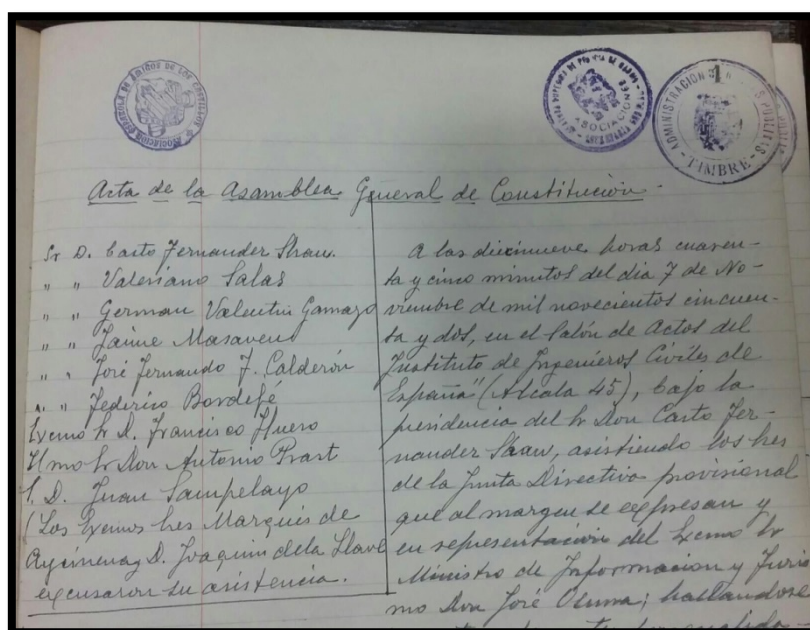 ASOCIACION ESPAÑOLA DE AMIGOS DE LOS CASTILLOS
ASOCIACION
1
ADMINISTRACION DE
TIMBRE
Acta de la Asamblea General de Constitución.
Sr D. Casto Fernandez Shaw.
" " Valeriano Salas
" " German Valentin Gamazo
" " Jaime Masaveu
" " José Fernando F. Calderón
" " Federico Bordejé
Excmo Sr D. Francisco Iñero
Ilmo Sr Don Antonio Prast
S. D. Juan Sampelayo
(Los Excmos Sres Marqués de
Aycinena y D. Joaquin de la Llave
excusaron su asistencia.
A las diecinueve horas cuaren-
ta y cinco minutos del dia 7 de No-
viembre de mil novecientos cincuen-
ta y dos, en el Salón de Actos del
Instituto de Ingenieros Civiles de
España" (Alcala 45), bajo la
presidencia del Sr Don Casto Fer-
nandez Shaw, asistiendo los Sres
de la Junta Directiva provisional
que al margen se expresan y
en representación del Excmo Sr
Ministro de Informacion y Turis
mo Don José Osuna; hallandose